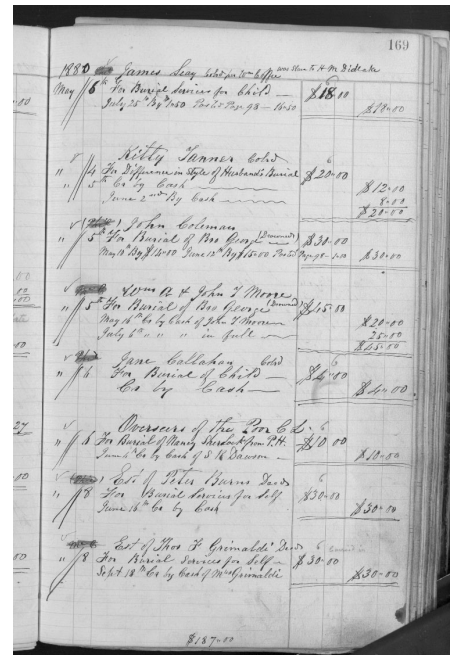 169
1880 James Seay Cold was Slave to H. M. Didlake
May 6th For Burial Services for Child — $18.00
July 25th By 1.50 Posted Page 98 — 16.50 $18.00
Kitty Tanner Cold
" 4 For Difference in Style of Husband's Burial $20.00
" 5th Cr by Cash $12.00
June 2nd By Cash 8.00
$20.00
John Coleman
" 5th For Burial of Bro George (Drowned) $30.00
May 10th By $14.00 June 12th By $15.00 Posted Page 98 - 1.00 $30.00
Wm A & John T Moore
" 5th For Burial of Bro George (Drowned) $45.00
May 16th Cr by Cash of John T Moore $20.00
July 6th " " " in full 25.00
$45.00
Jane Callahan Cold
" 6 For Burial of Child — $4.00
Cr by Cash — $4.00
Overseers of the Poor C L
" 6 For Burial of Nancy from P.H. $10.00
June Cr by Cash of S. R. Dawson $10.00
Est of Peter Burns Decd
" 8 For Burial Services for Self $30.00
June 16th Cr by Cash $30.00
Est of Thos F Grimaldi Decd
" 8 For Burial Services for Self $30.00
Sept 18th Cr by Cash of Mrs Grimaldi $30.00
$187.00